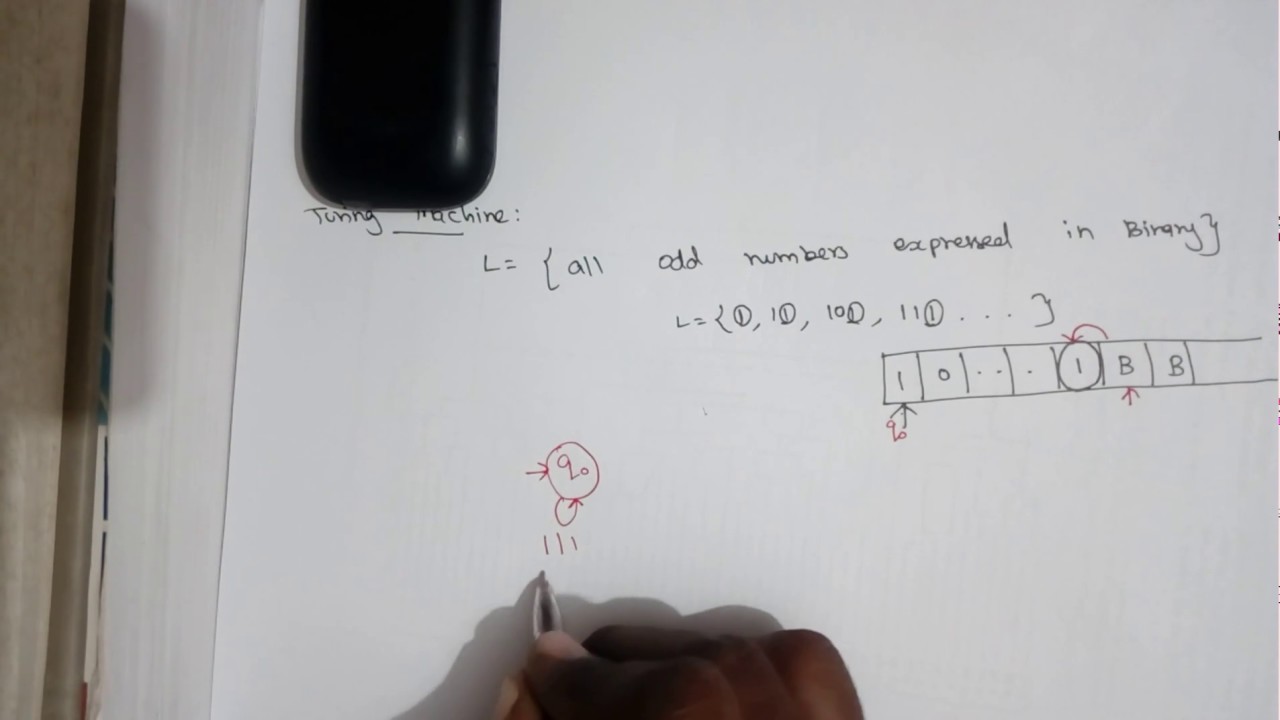 Turing Machine:
L= {all odd numbers expressed in Binary}
L={1, 11, 101, 111 . . . }
1 0 . . . 1 B B
q0
q0
1/1